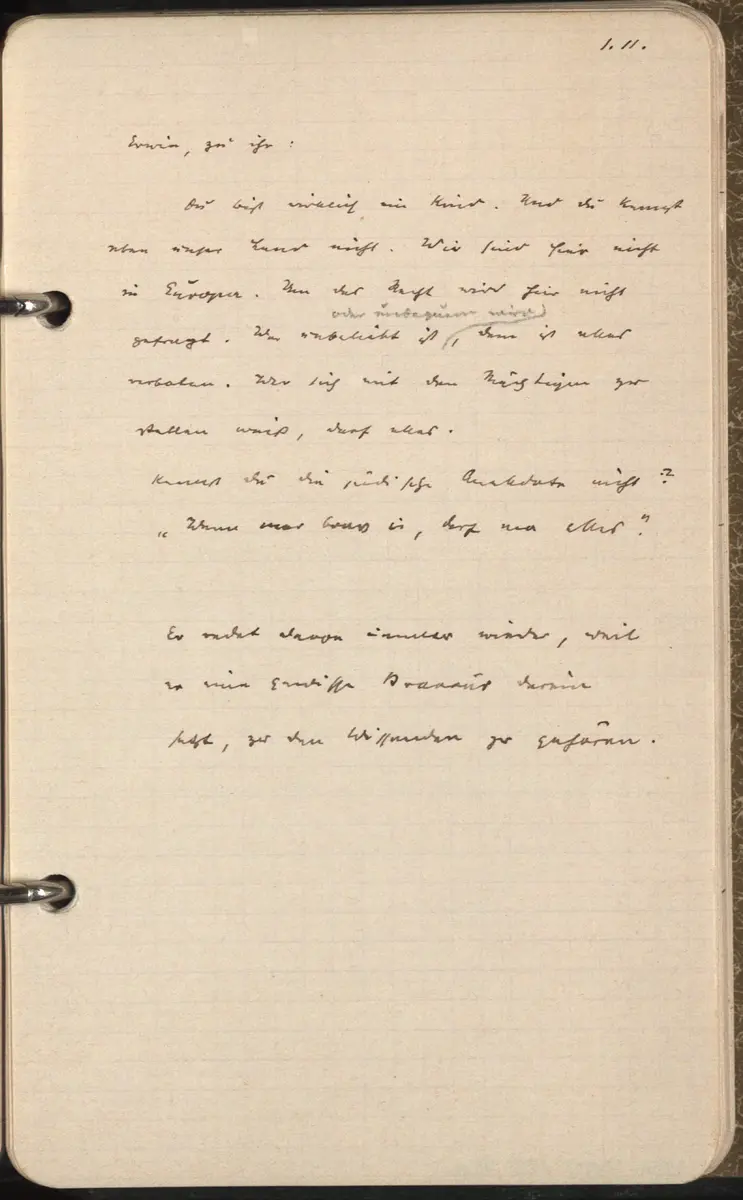 1. II.
Erwin, zu ihr:
Du bist wirklich ein Kind. Und du kennst
eben unser Land nicht. Wir sind hier nicht
in Europa. Um das Recht wird hier nicht
oder unbequem wird
gefragt. Wer unbeliebt ist, dem ist alles
verboten. Wer sich mit den Mächtigen zu
stellen weiß, darf alles.
Kennst du die jüdische Anekdote nicht?
„Wenn mar brav is, derf ma alles"?
Er redet davon immer wieder, weil
er eine gewisse Bravour darein
setzt, zu den Wissenden zu gehören.